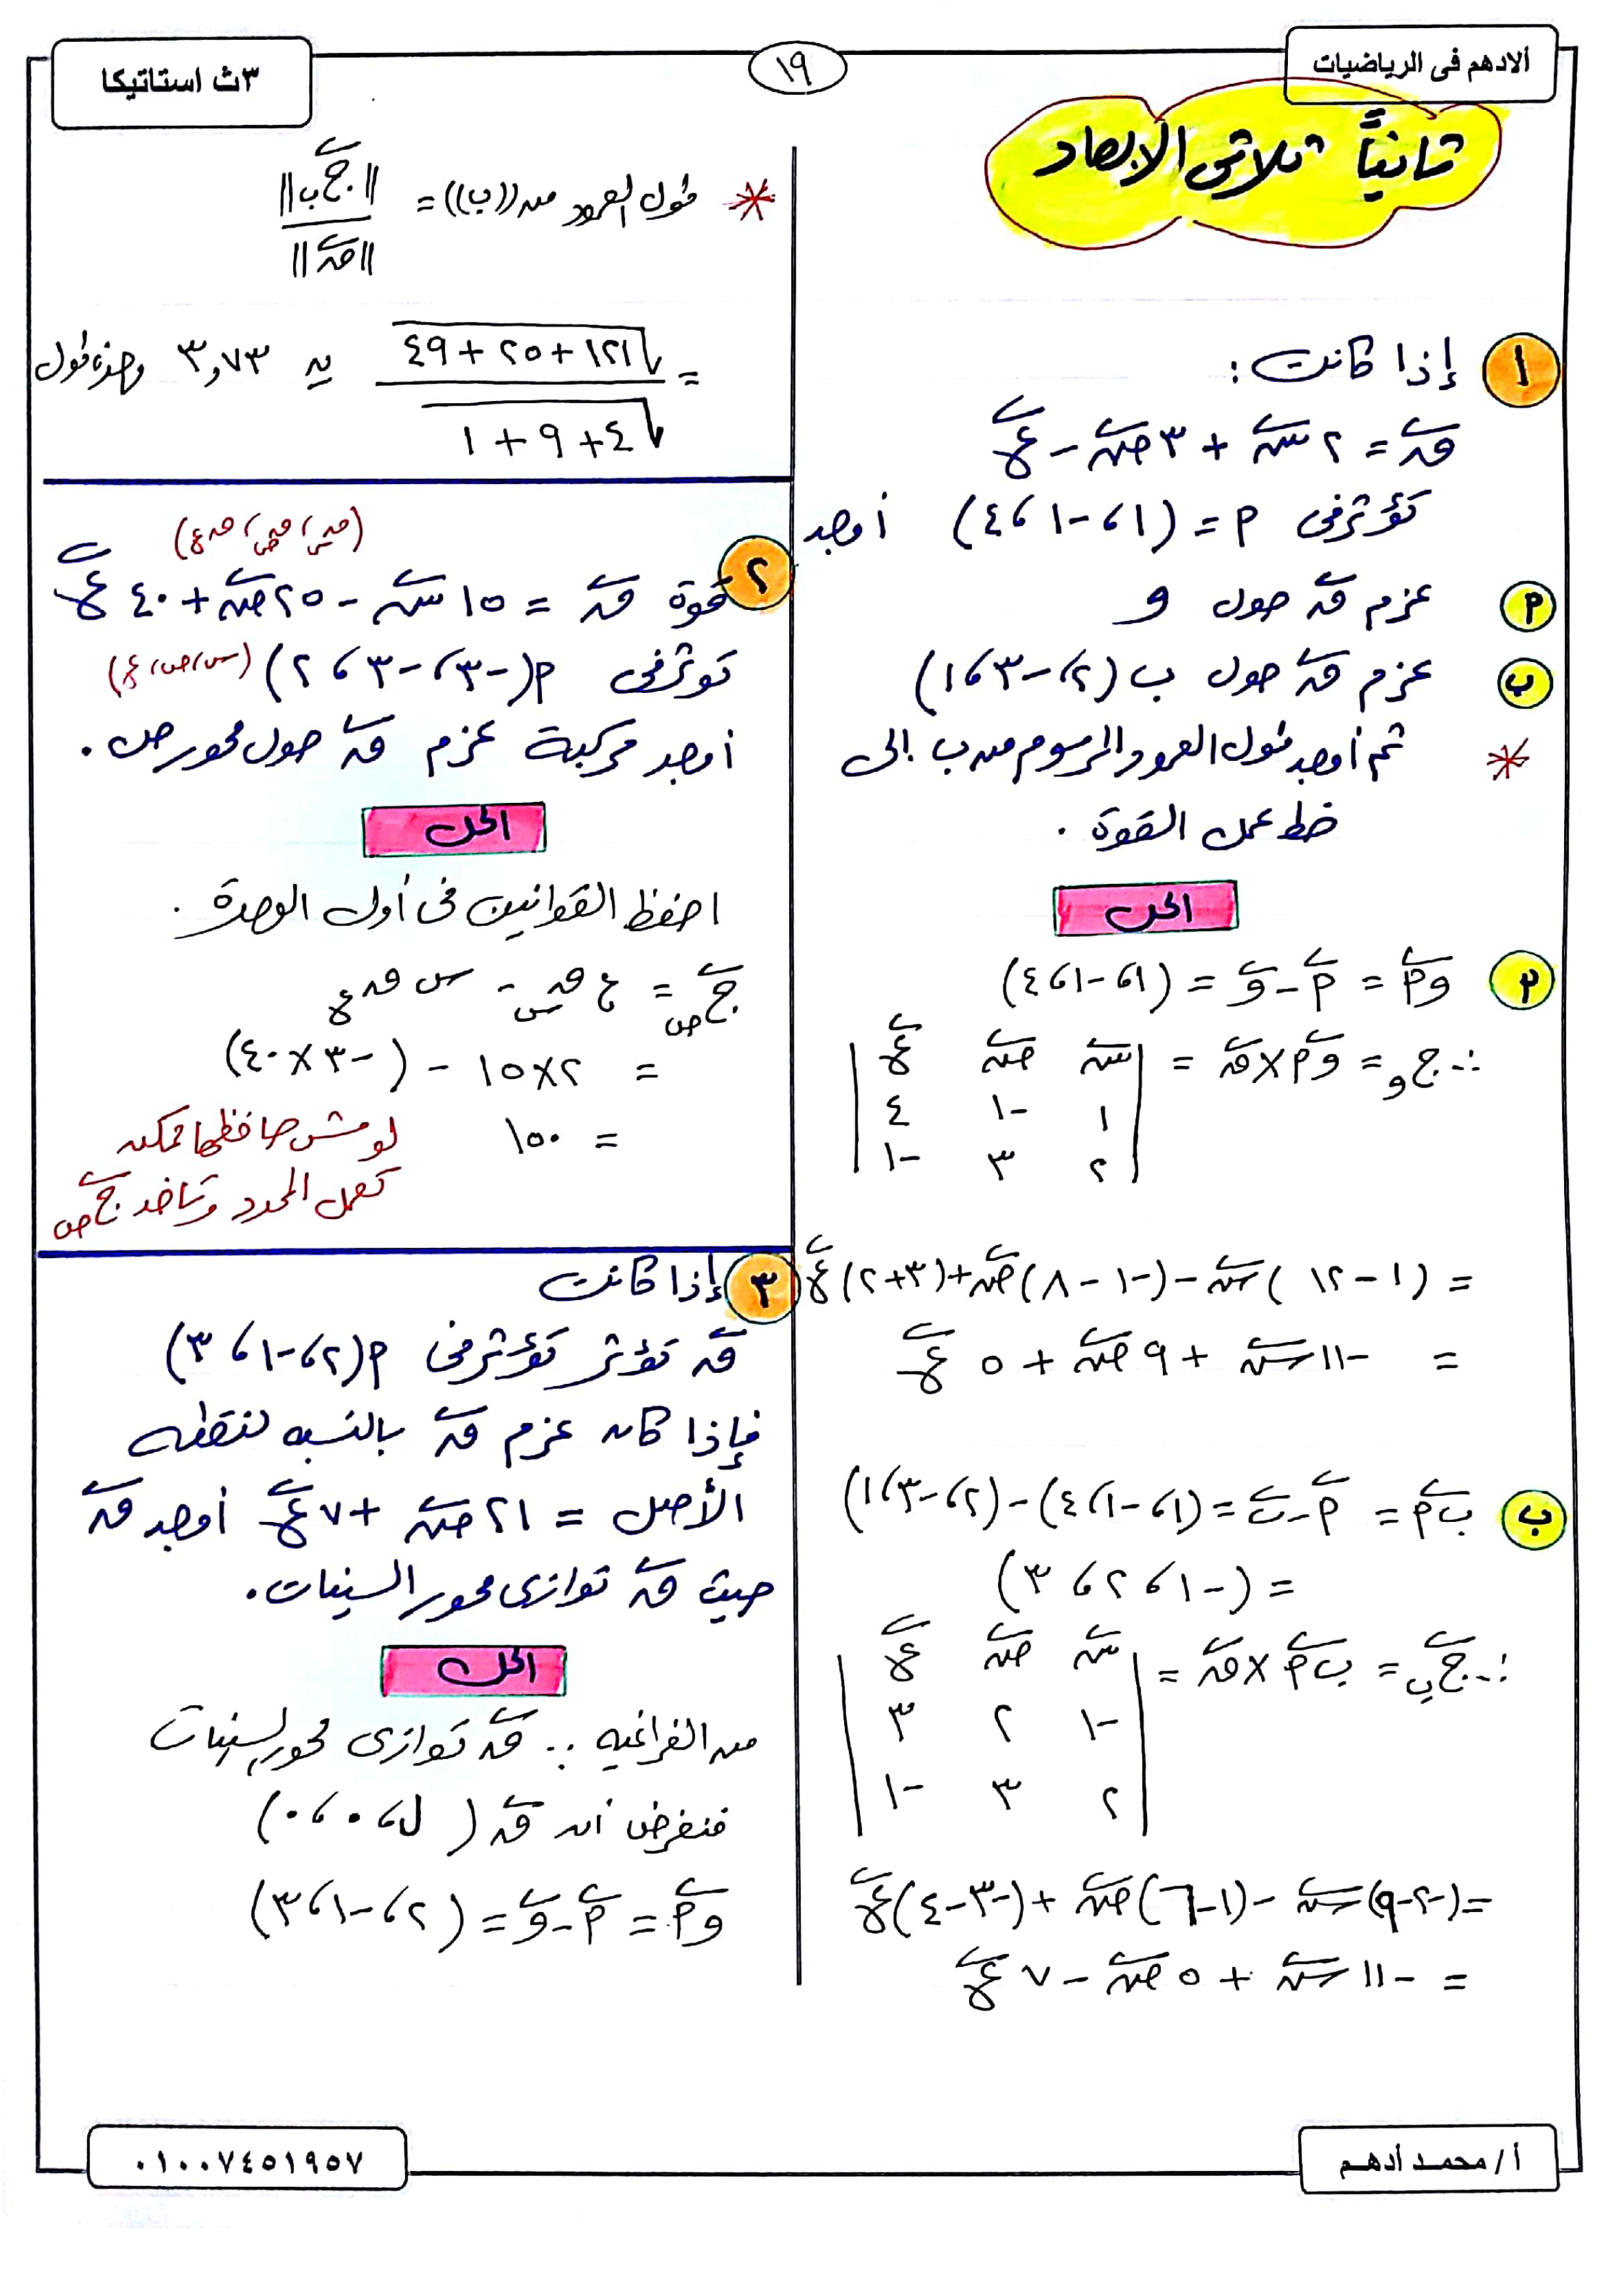 ألادهم فى الرياضيات
١٩
٣ث استاتيكا
ثانياً ثلاثى الابعاد
١ إذا كانت :
ق = ٢ س + ٣ ص - ع
تؤثر فى P = (١، -١، ٤) أوجد
P عزم ق حول و
ب عزم ق حول ب (٢، -٣، ١)
* ثم أوجد طول العمود المرسوم من ب إلى
خط عمل القوة .
الحل
P وP = P - و = (١، -١، ٤)
∴ ج و = وP × ق = | س ص ع |
١ -١ ٤
٢ ٣ -١
= (١ - ١٢) س - (-١ - ٨) ص + (٣+٢) ع
= -١١ س + ٩ ص + ٥ ع
ب بP = P - ب = (١، -١، ٤) - (٢، -٣، ١)
= (-١، ٢، ٣)
∴ ج ب = بP × ق = | س ص ع |
-١ ٢ ٣
٢ ٣ -١
= (-٢-٩) س - (١-٦) ص + (-٣-٤) ع
= -١١ س + ٥ ص - ٧ ع
* طول العمود من ((ب)) = ||ج ب|| / ||ق||
= √(١٢١ + ٢٥ + ٤٩) / √(٤ + ٩ + ١) ≃ ٣,٧٣ وحدة طول
(ق س، ق ص، ق ع)
٢ قوة ق = ١٥ س - ٢٥ ص + ٤٠ ع
تؤثر فى P (-٣، -٣، ٢) (س، ص، ع)
أوجد مركبة عزم ق حول محور ص .
الحل
احفظ القوانين فى أول الوحدة .
ج ص = ع ق س - س ق ع
= ٢×١٥ - (-٣ × ٤٠)
= ١٥٠
لو مش حافظها ممكن
تعمل المحدد وتاخد ج ص
٣ إذا كانت
ق تؤثر تؤثر فى P (٢، -١، ٣)
فإذا كان عزم ق بالنسبه لنقطه
الأصل = ٢١ ص + ٧ ع أوجد ق
حيث ق توازى محور السينات .
الحل
من الفراغيه ∵ ق توازى محور السينات
فنفرض أن ق (ل، ٠، ٠)
وP = P - و = (٢، -١، ٣)
أ / محمد أدهم
٠١٠٠٧٤٥١٩٥٧